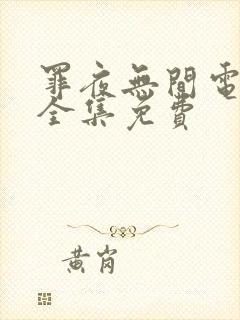 罪夜無間電
全集免費
黃岗